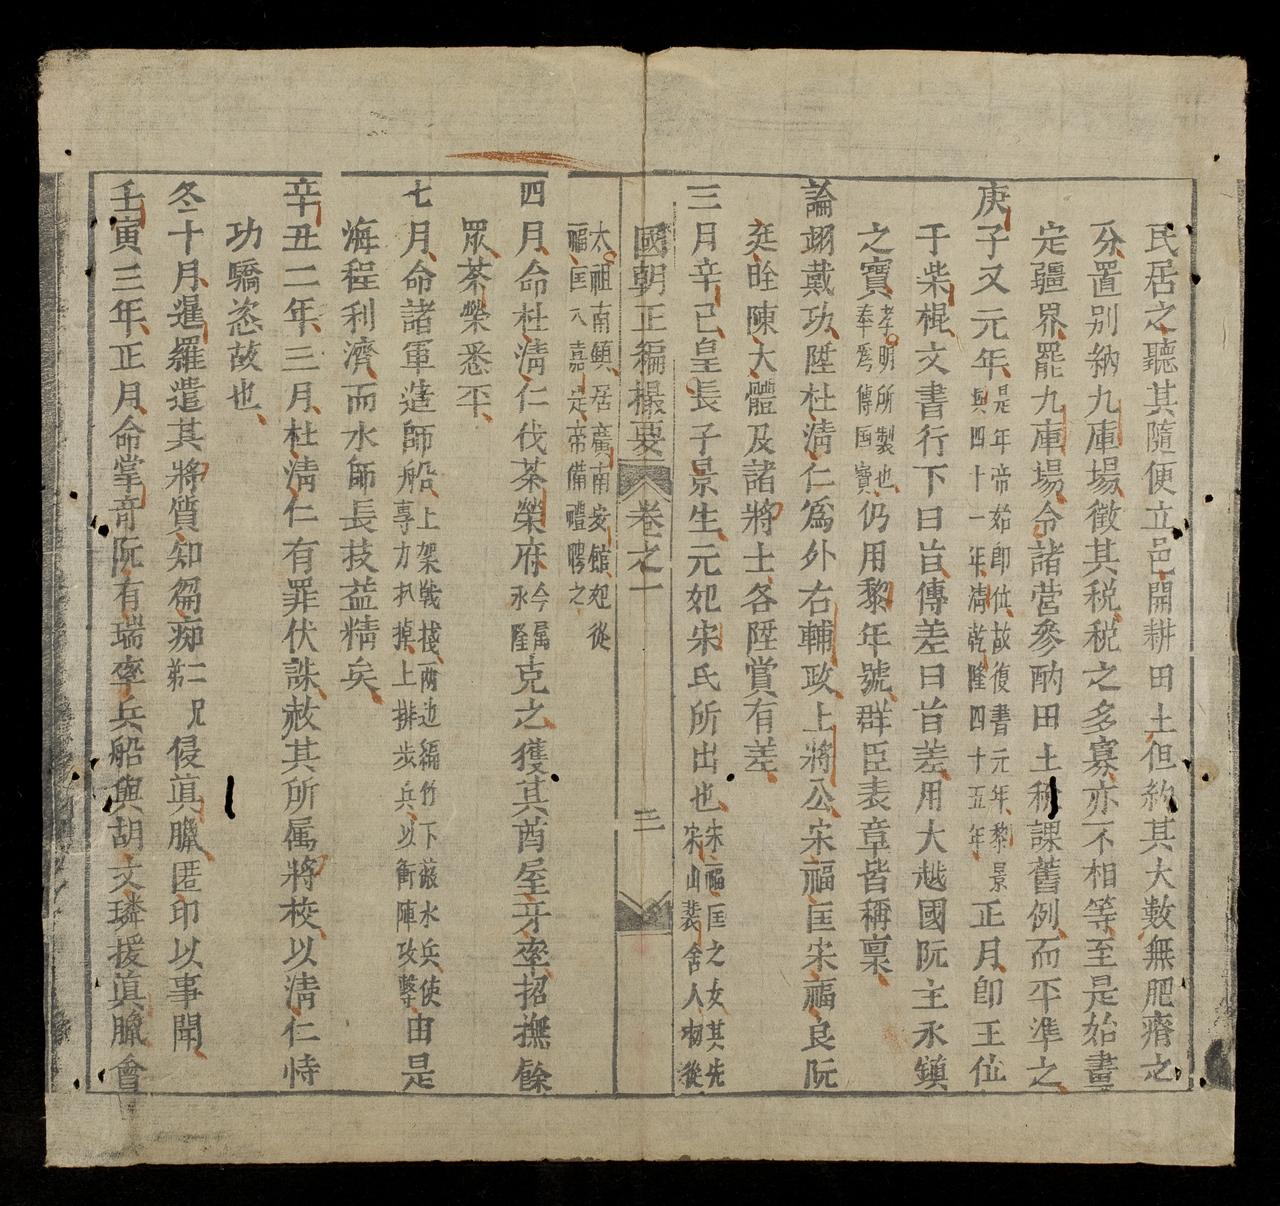 民居之聽其隨便立邑開耕田土但約其大數無肥瘠之
分置别納九庫場徵其税税之多寡亦不相等至是始畫
定疆界罷九庫場令諸營參酌田土税課舊例而平準之
庚子又元年是年帝始即位故復書元年黎景
興四十一年清乾隆四十五年正月卽王位
于柴棍文書行下曰旨傳差曰旨差用大越國阮主永鎮
之寶孝明所製也
奉爲傳国寶仍用黎年號群臣表章皆稱稟
論翊戴功陞杜清仁爲外右輔政上將公宋福匡宋福良阮
廷㫼陳大體及諸將士各陞賞有差
三月辛已皇長子景生元妃宋氏所出也宋福匡之女其先
宋山裴舍人物後
國朝正編撮要 卷之一 三
太祖南鎮居廣南安館妃從
福匡入嘉定帝備禮聘之
四月命杜清仁伐茶榮府今属
永隆克之獲其酋屋牙率招撫餘
眾茶榮悉平
七月命諸軍造師船上架戰棧两边編竹下嚴水兵使
專力扒掉上排步兵以衝陣攻擊由是
海程利濟而水師長技益精矣
辛丑二年三月杜清仁有罪伏誅赦其所属將校以清仁恃
功驕恣故也
冬十月暹羅遣其將質知芻痴二兄
弟侵眞臘匿印以事聞
壬寅三年正月命掌奇阮有瑞率兵船與胡文璘援眞臘會